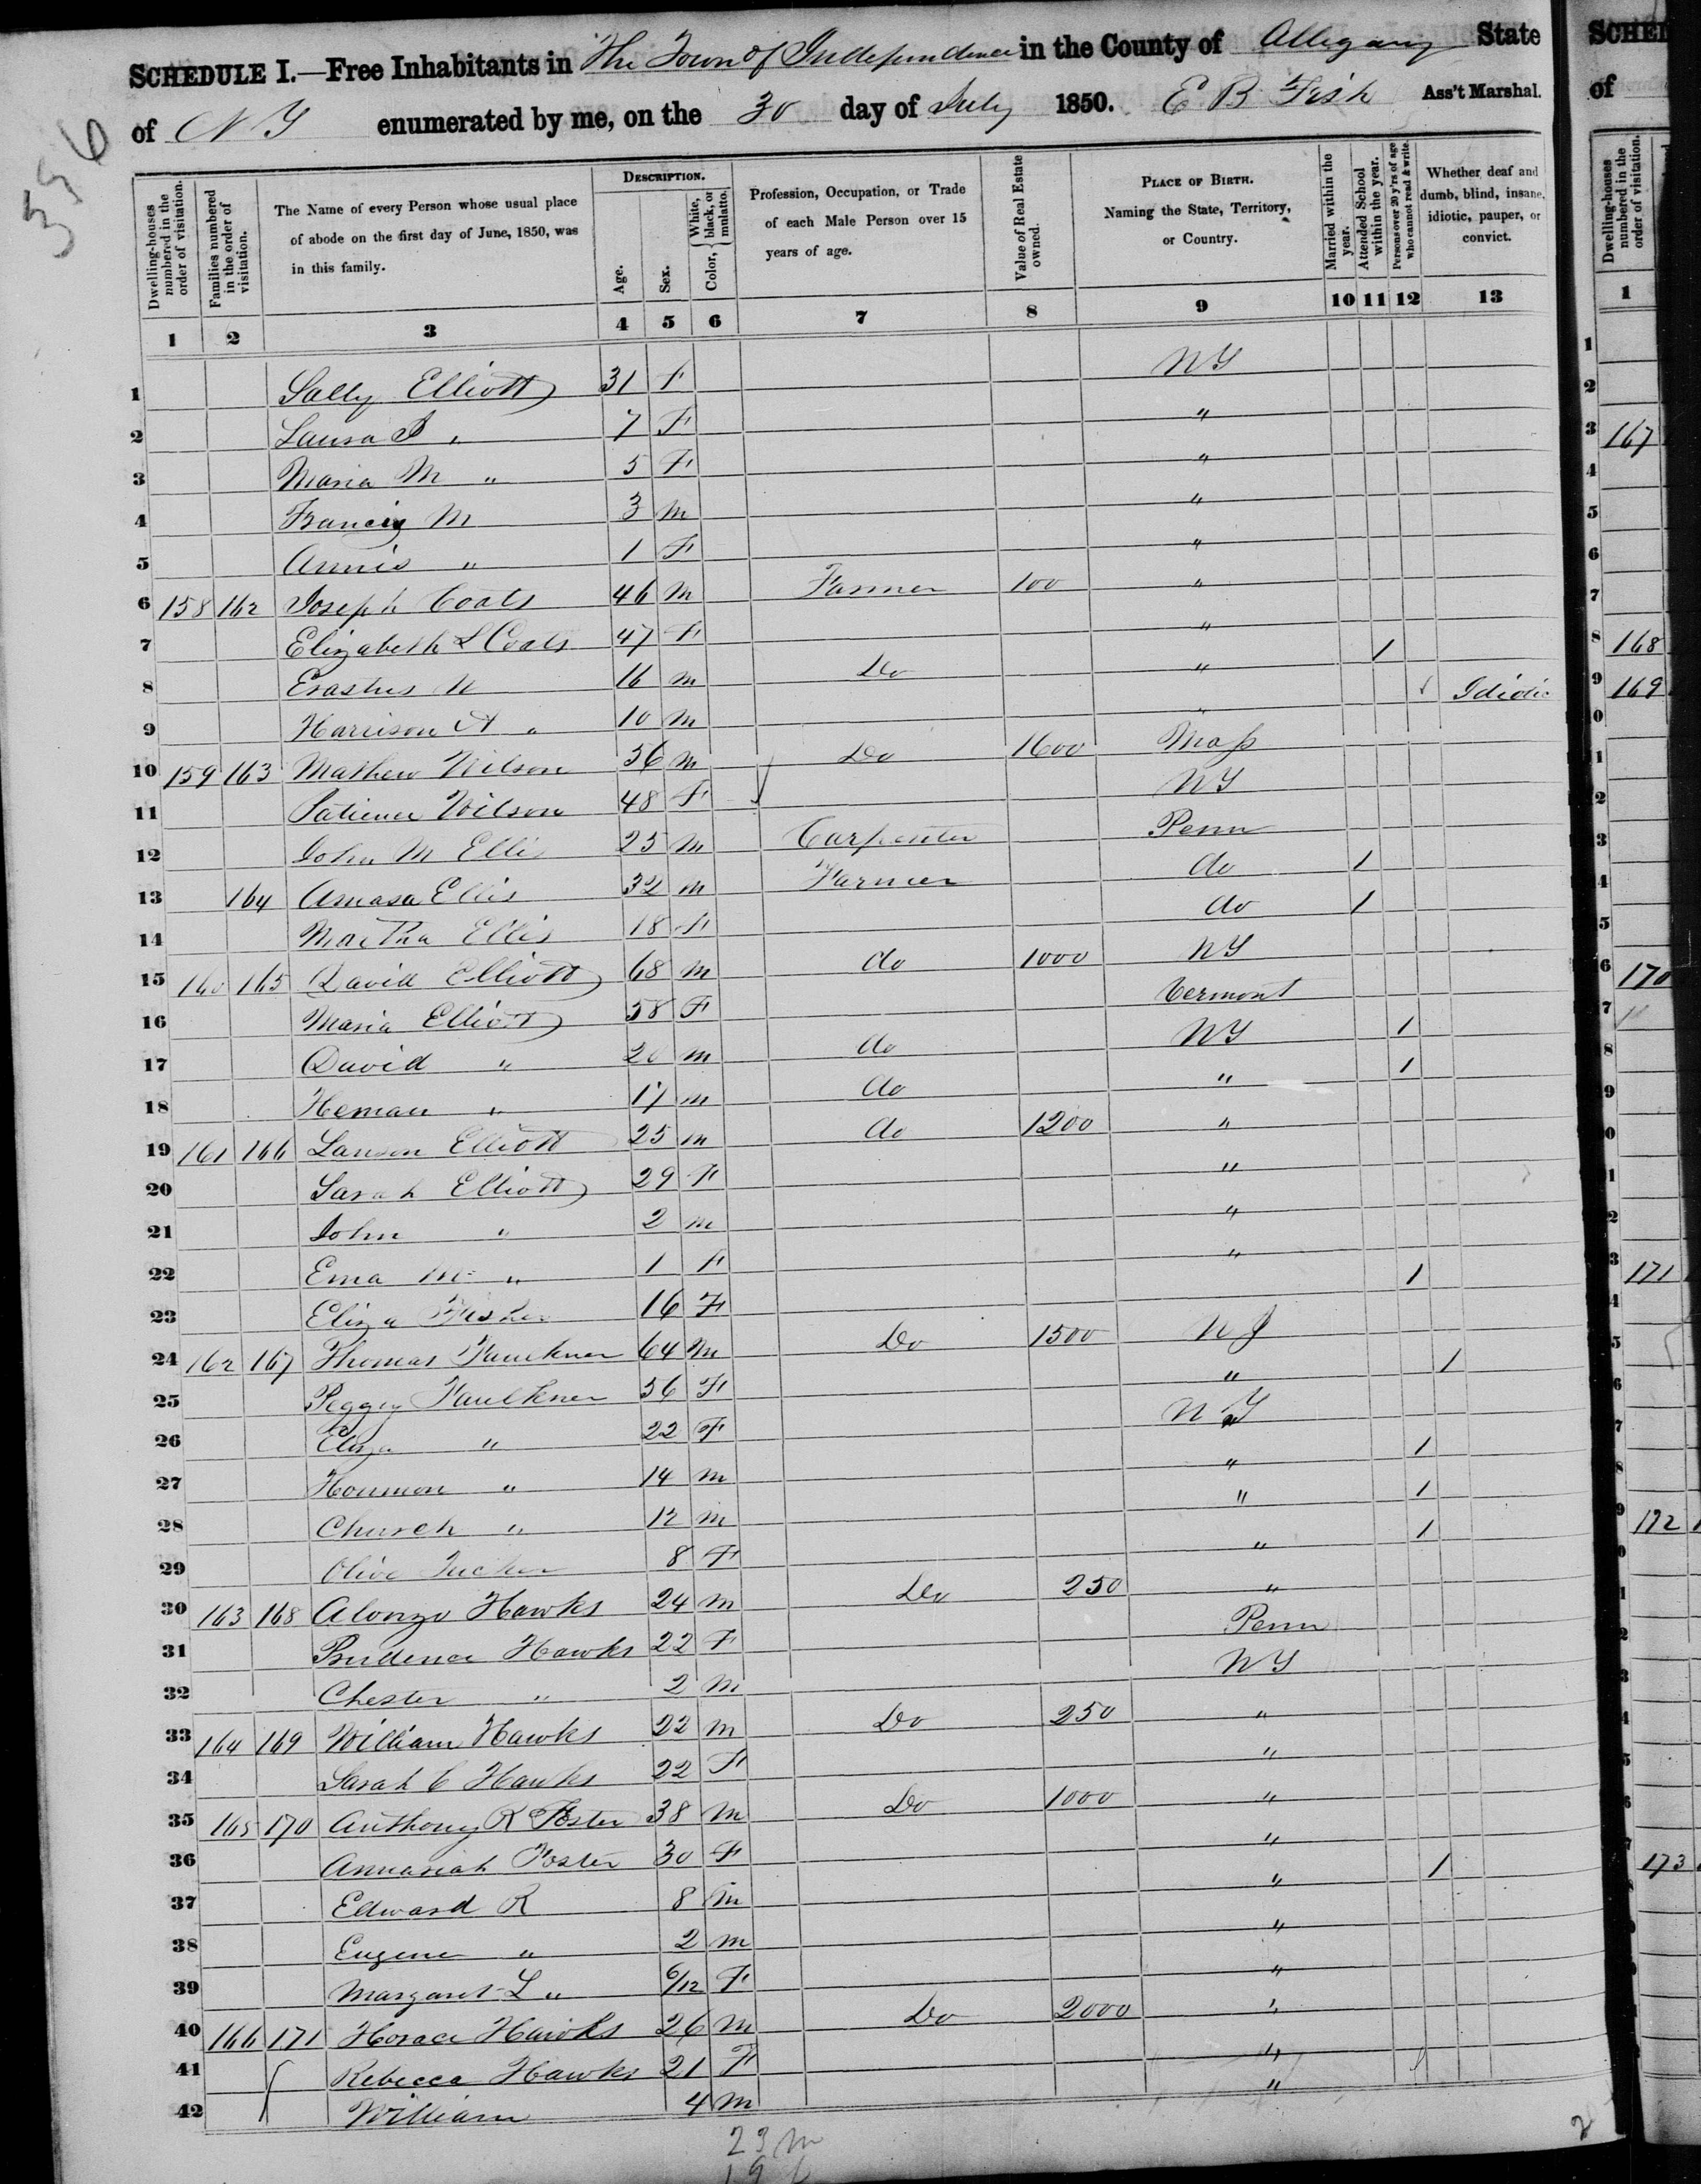 356
SCHEDULE I.—Free Inhabitants in The Town of Independence in the County of Allegany State
of N Y enumerated by me, on the 30 day of July 1850. E B Fish Ass't Marshal.
Dwelling-houses numbered in the order of visitation.
Families numbered in the order of visitation.
The Name of every Person whose usual place of abode on the first day of June, 1850, was in this family.
DESCRIPTION.
Age.
Sex.
Color, { White, black, or mulatto.
Profession, Occupation, or Trade of each Male Person over 15 years of age.
Value of Real Estate owned.
PLACE OF BIRTH. Naming the State, Territory, or Country.
Married within the year.
Attended School within the year.
Persons over 20 y'rs of age who cannot read & write.
Whether deaf and dumb, blind, insane, idiotic, pauper, or convict.
1 2 3 4 5 6 7 8 9 10 11 12 13
1 Sally Elliott 31 F N Y
2 Laura J " 7 F "
3 Maria M " 5 F "
4 Francis M 3 m "
5 Annis " 1 F "
6 158 162 Joseph Coats 46 m Farmer 100 "
7 Elizabeth L Coats 47 F "
8 Erastus N 16 m Do " 1
9 Harrison A " 10 m " Idiotic
10 159 163 Mathew Wilson 56 m Do 1600 Mass
11 Patience Wilson 48 F N Y
12 John M Ellis 25 m Carpenter Penn
13 164 Amasa Ellis 32 m Farmer do 1
14 Martha Ellis 18 F do 1
15 160 165 David Elliott 68 m do 1000 N Y
16 Maria Elliott 58 F Vermont
17 David " 20 m do N Y 1
18 Heman " 17 m do " 1
19 161 166 Lanson Elliott 25 m do 1200 "
20 Sarah Elliott 29 F "
21 John " 2 m "
22 Ema M " 1 F "
23 Eliza Fisher 16 F 1
24 162 167 Thomas Faulkner 64 m Do 1500 N J
25 Peggy Faulkner 56 F " 1
26 Eliza " 22 F N Y
27 " 14 m " 1
28 Church " 12 m " 1
29 Olive Tucker 8 F " 1
30 163 168 Alonzo Hawks 24 m Do 250 "
31 Prudence Hawks 22 F Penn
32 Chester " 2 m N Y
33 164 169 William Hawks 22 m Do 250 "
34 Sarah C Hawks 22 F "
35 165 170 Anthony R Foster 38 m Do 1000 "
36 Annariah Foster 30 F "
37 Edward R 8 m " 1
38 Eugene " 2 m "
39 Margaret L " 6/12 F "
40 166 171 Horace Hawks 26 m Do 2000 "
41 Rebecca Hawks 21 F "
42 William 4 m "
23 m
19 f
SCHED
of
Dwelling-houses numbered in the order of visitation.
1
167
168
169
170
171
172
173